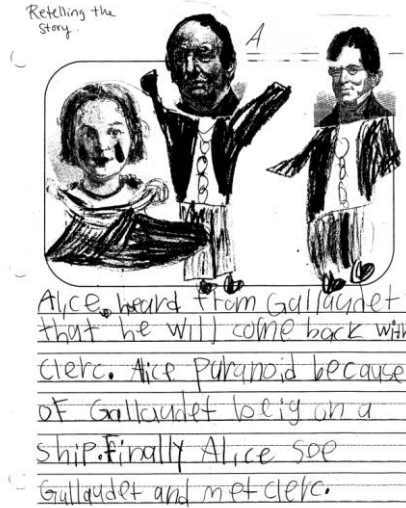 Retelling the
story.
A
Alice heard from Gallaudet
that he will come back with
clerc. Alice paranoid because
of Gallaudet beig on a
ship. Finally Alice see
Gallaudet and met clerc.